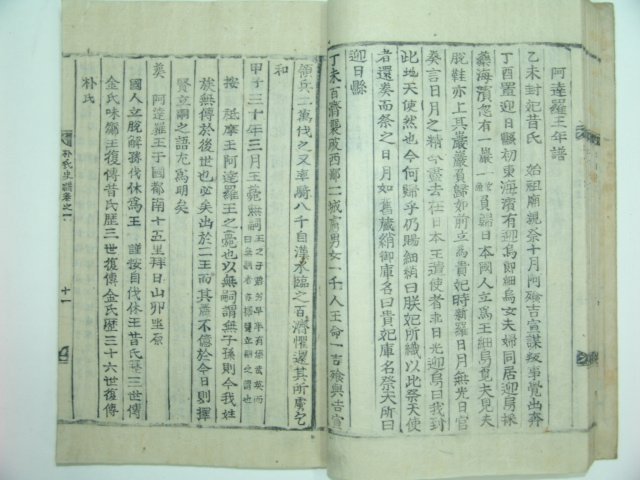 阿達羅王年譜
乙未封記昔氏 始祖廟親祭十月阿飱吉宣謀叛事覺出奔
丁酉置迎日縣初東海濱有迎烏郎細烏女夫婦同居迎烏採
藻海濱忽有一巖一負歸日本國人立爲王細烏覓夫見夫
脫鞋亦上其巖巖負歸如前立爲貴妃時新羅日月無光日官
奏言日月之精今盡去在日本王遣使者求日光迎烏曰我到
此地天使然也今何歸乎仍賜細綃曰朕妃所織以此祭天使
者還奏而祭之日月如舊藏綃御庫名曰貴妃庫名祭天所曰
迎日縣
丁未百濟襲破西鄙二城虜男女一千人王命一吉飱興吉宣
領兵二萬伐之又率騎八千自漢水臨之百濟懼還其所虜乞
和
甲子三十一年三月王薨無嗣
按 祗摩王阿達羅王之薨也以無嗣謂無子孫則今我姓
族無傳於後世也必矣出於二王而其麗不億於今日則擇
賢立嗣之語尤爲明矣
葬 阿達羅王于國都南十五里拜日山卯坐原
國人立脫解裔伐休爲王 謹按自伐休王昔氏三世傳
金氏味鄒王復傳昔氏歷三世復傳金氏歷三十六世復傳
朴氏
朴氏史譜卷之一
十一